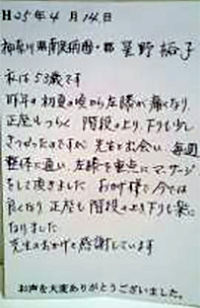 H25年4月14日
神奈川県南足柄市・郡 星野裕子
私は53歳です
昨年の初夏の頃から左膝が痛くなり
正座もつらく 階段の上り、下りも少し
きつかったのですが、先生と出会い、毎週
整体に通い、左膝を重点にマッサージ
をして頂きました おかげ様で今では
良くなり 正座も階段の上り下りも楽に
なりました
先生のおかげと感謝しています
お声を大変ありがとうございました。